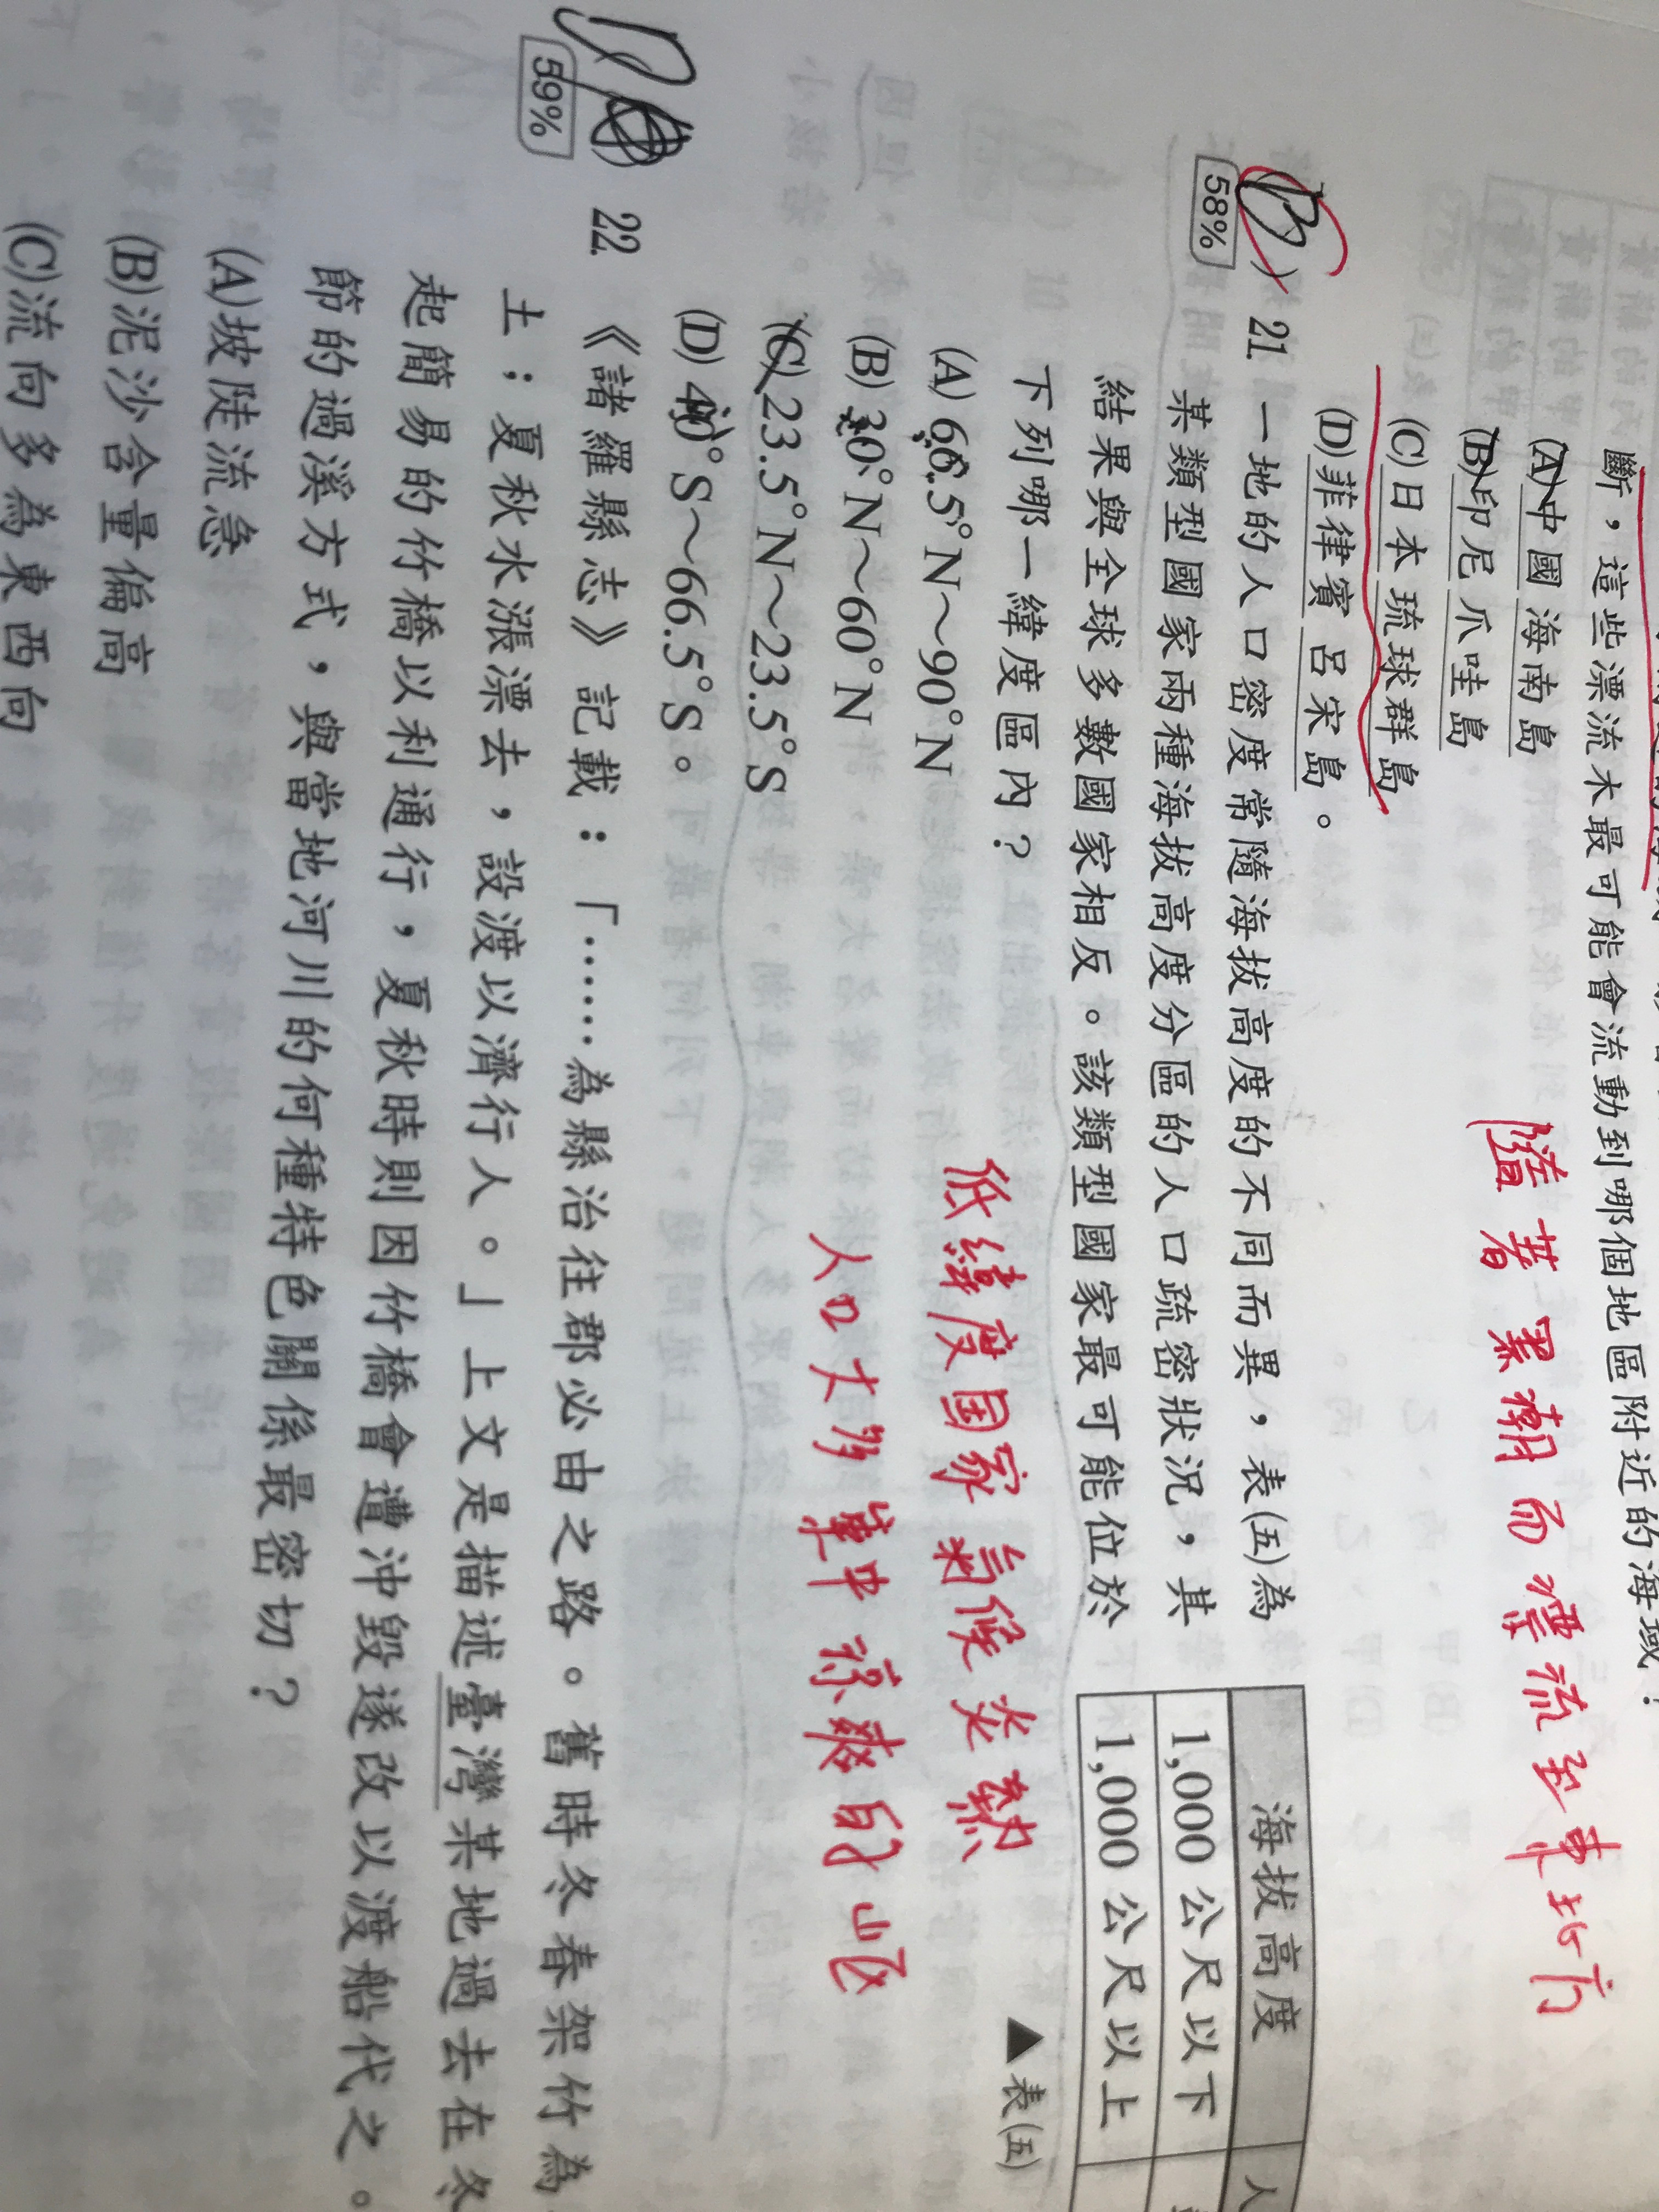 斷，這些漂流木最可能會流動到哪個地區附近的海域？
(A)中國海南島
(B)印尼爪哇島
(C)日本琉球群島
(D)菲律賓呂宋島。
隨著黑潮而漂流至東北方
58%
B
21. 一地的人口密度常隨海拔高度的不同而異，表(五)為
某類型國家兩種海拔高度分區的人口疏密狀況，其
結果與全球多數國家相反。該類型國家最可能位於
下列哪一緯度區內？
(A) 66.5°N～90°N
(B) 30°N～60°N
(C) 23.5°N～23.5°S
(D) 40°S～66.5°S。
海拔高度
人
1,000 公尺以下
1,000 公尺以上
▲表(五)
低緯度国家氣候炎熱
人口大多集中涼爽的山区
59%
22. 《諸羅縣志》記載：「……為縣治往郡必由之路。舊時冬春架竹為
土；夏秋水漲漂去，設渡以濟行人。」上文是描述臺灣某地過去在冬
起簡易的竹橋以利通行，夏秋時則因竹橋會遭沖毀遂改以渡船代之。
節的過溪方式，與當地河川的何種特色關係最密切？
(A)坡陡流急
(B)泥沙含量偏高
(C)流向多為東西向